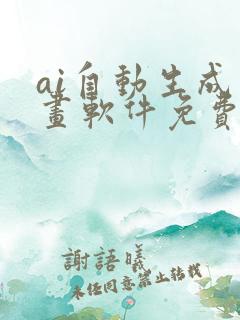 ai自動生成
畫軟件免費
謝語曦
未任同意禁止转载